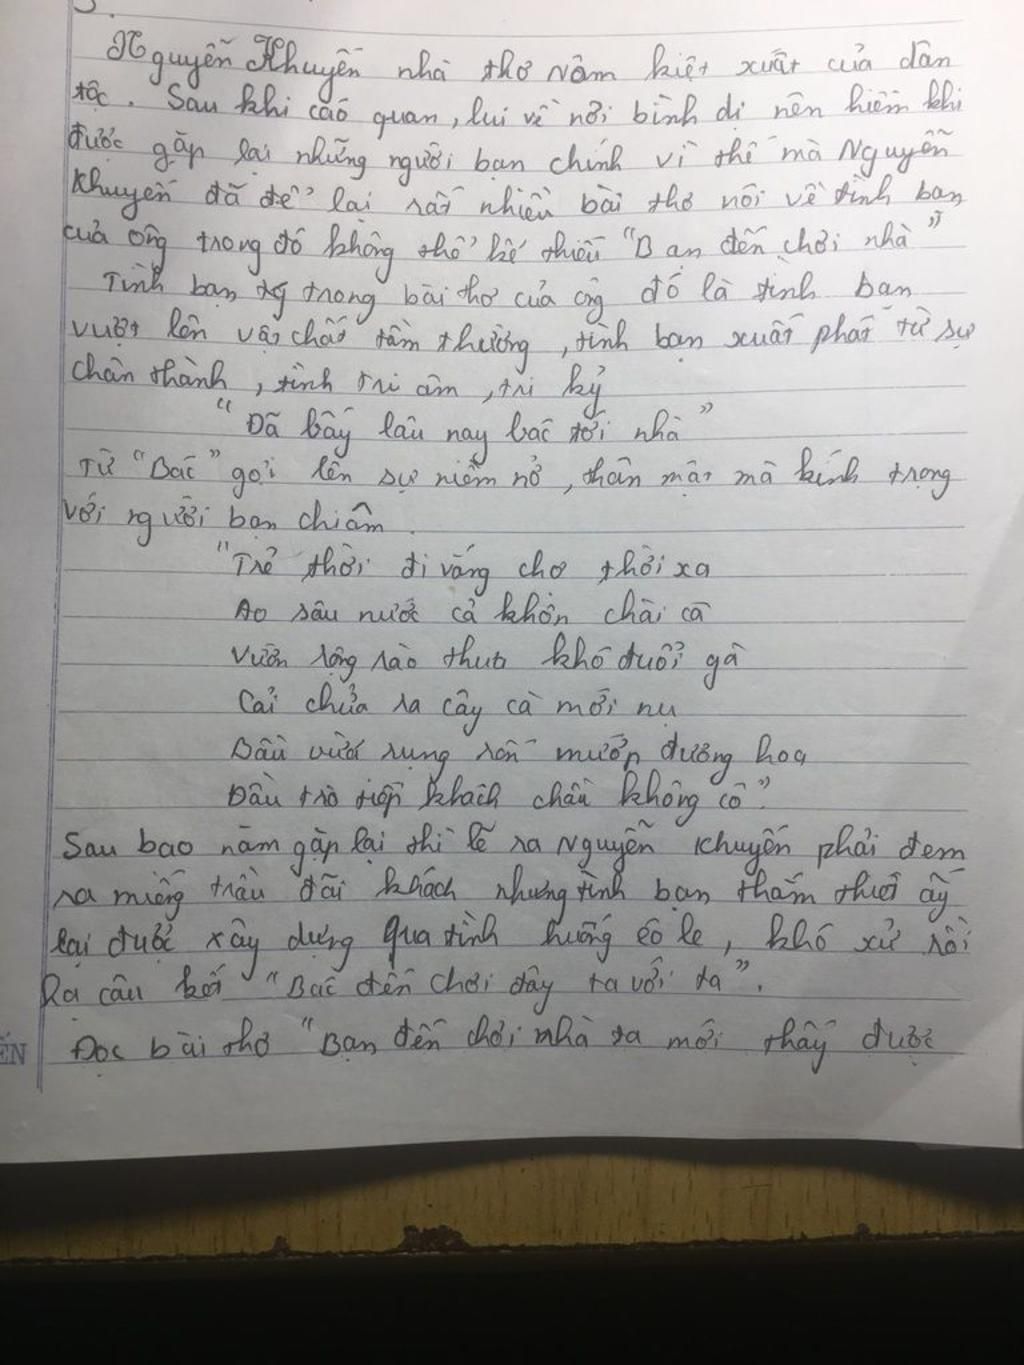 Nguyễn Khuyến nhà thơ Nôm kiệt xuất của dân
tộc. Sau khi cáo quan, lui về nơi bình dị nên hiếm khi
được gặp lại những người bạn chính vì thế mà Nguyễn
Khuyến đã để lại rất nhiều bài thơ nói về tình bạn
của ông trong đó không thể kể thiếu "Bạn đến chơi nhà"
Tình bạn trong bài thơ của ông đó là tình bạn
vượt lên vật chất tầm thường, tình bạn xuất phát từ sự
chân thành, tình tri âm, tri kỷ
"Đã bấy lâu nay bác tới nhà"
Từ "Bác" gợi lên sự niềm nở, thân mật mà kính trọng
với người bạn chi âm.
"Trẻ thời đi vắng chợ thời xa
Ao sâu nước cả khôn chài cá
Vườn rộng rào thưa khó đuổi gà
Cải chửa ra cây cà mới nụ
Bầu vừa rụng rốn mướp đương hoa
Đầu trò tiếp khách chầu không có"
Sau bao năm gặp lại thì lẽ ra Nguyễn Khuyến phải đem
ra miếng trầu đãi khách nhưng tình bạn thắm thiết ấy
lại được xây dựng qua tình huống éo le, khó xử rồi
Ra câu kết "Bác đến chơi đây ta với ta".
Đọc bài thơ "Bạn đến chơi nhà ta mới thấy được
ẾN